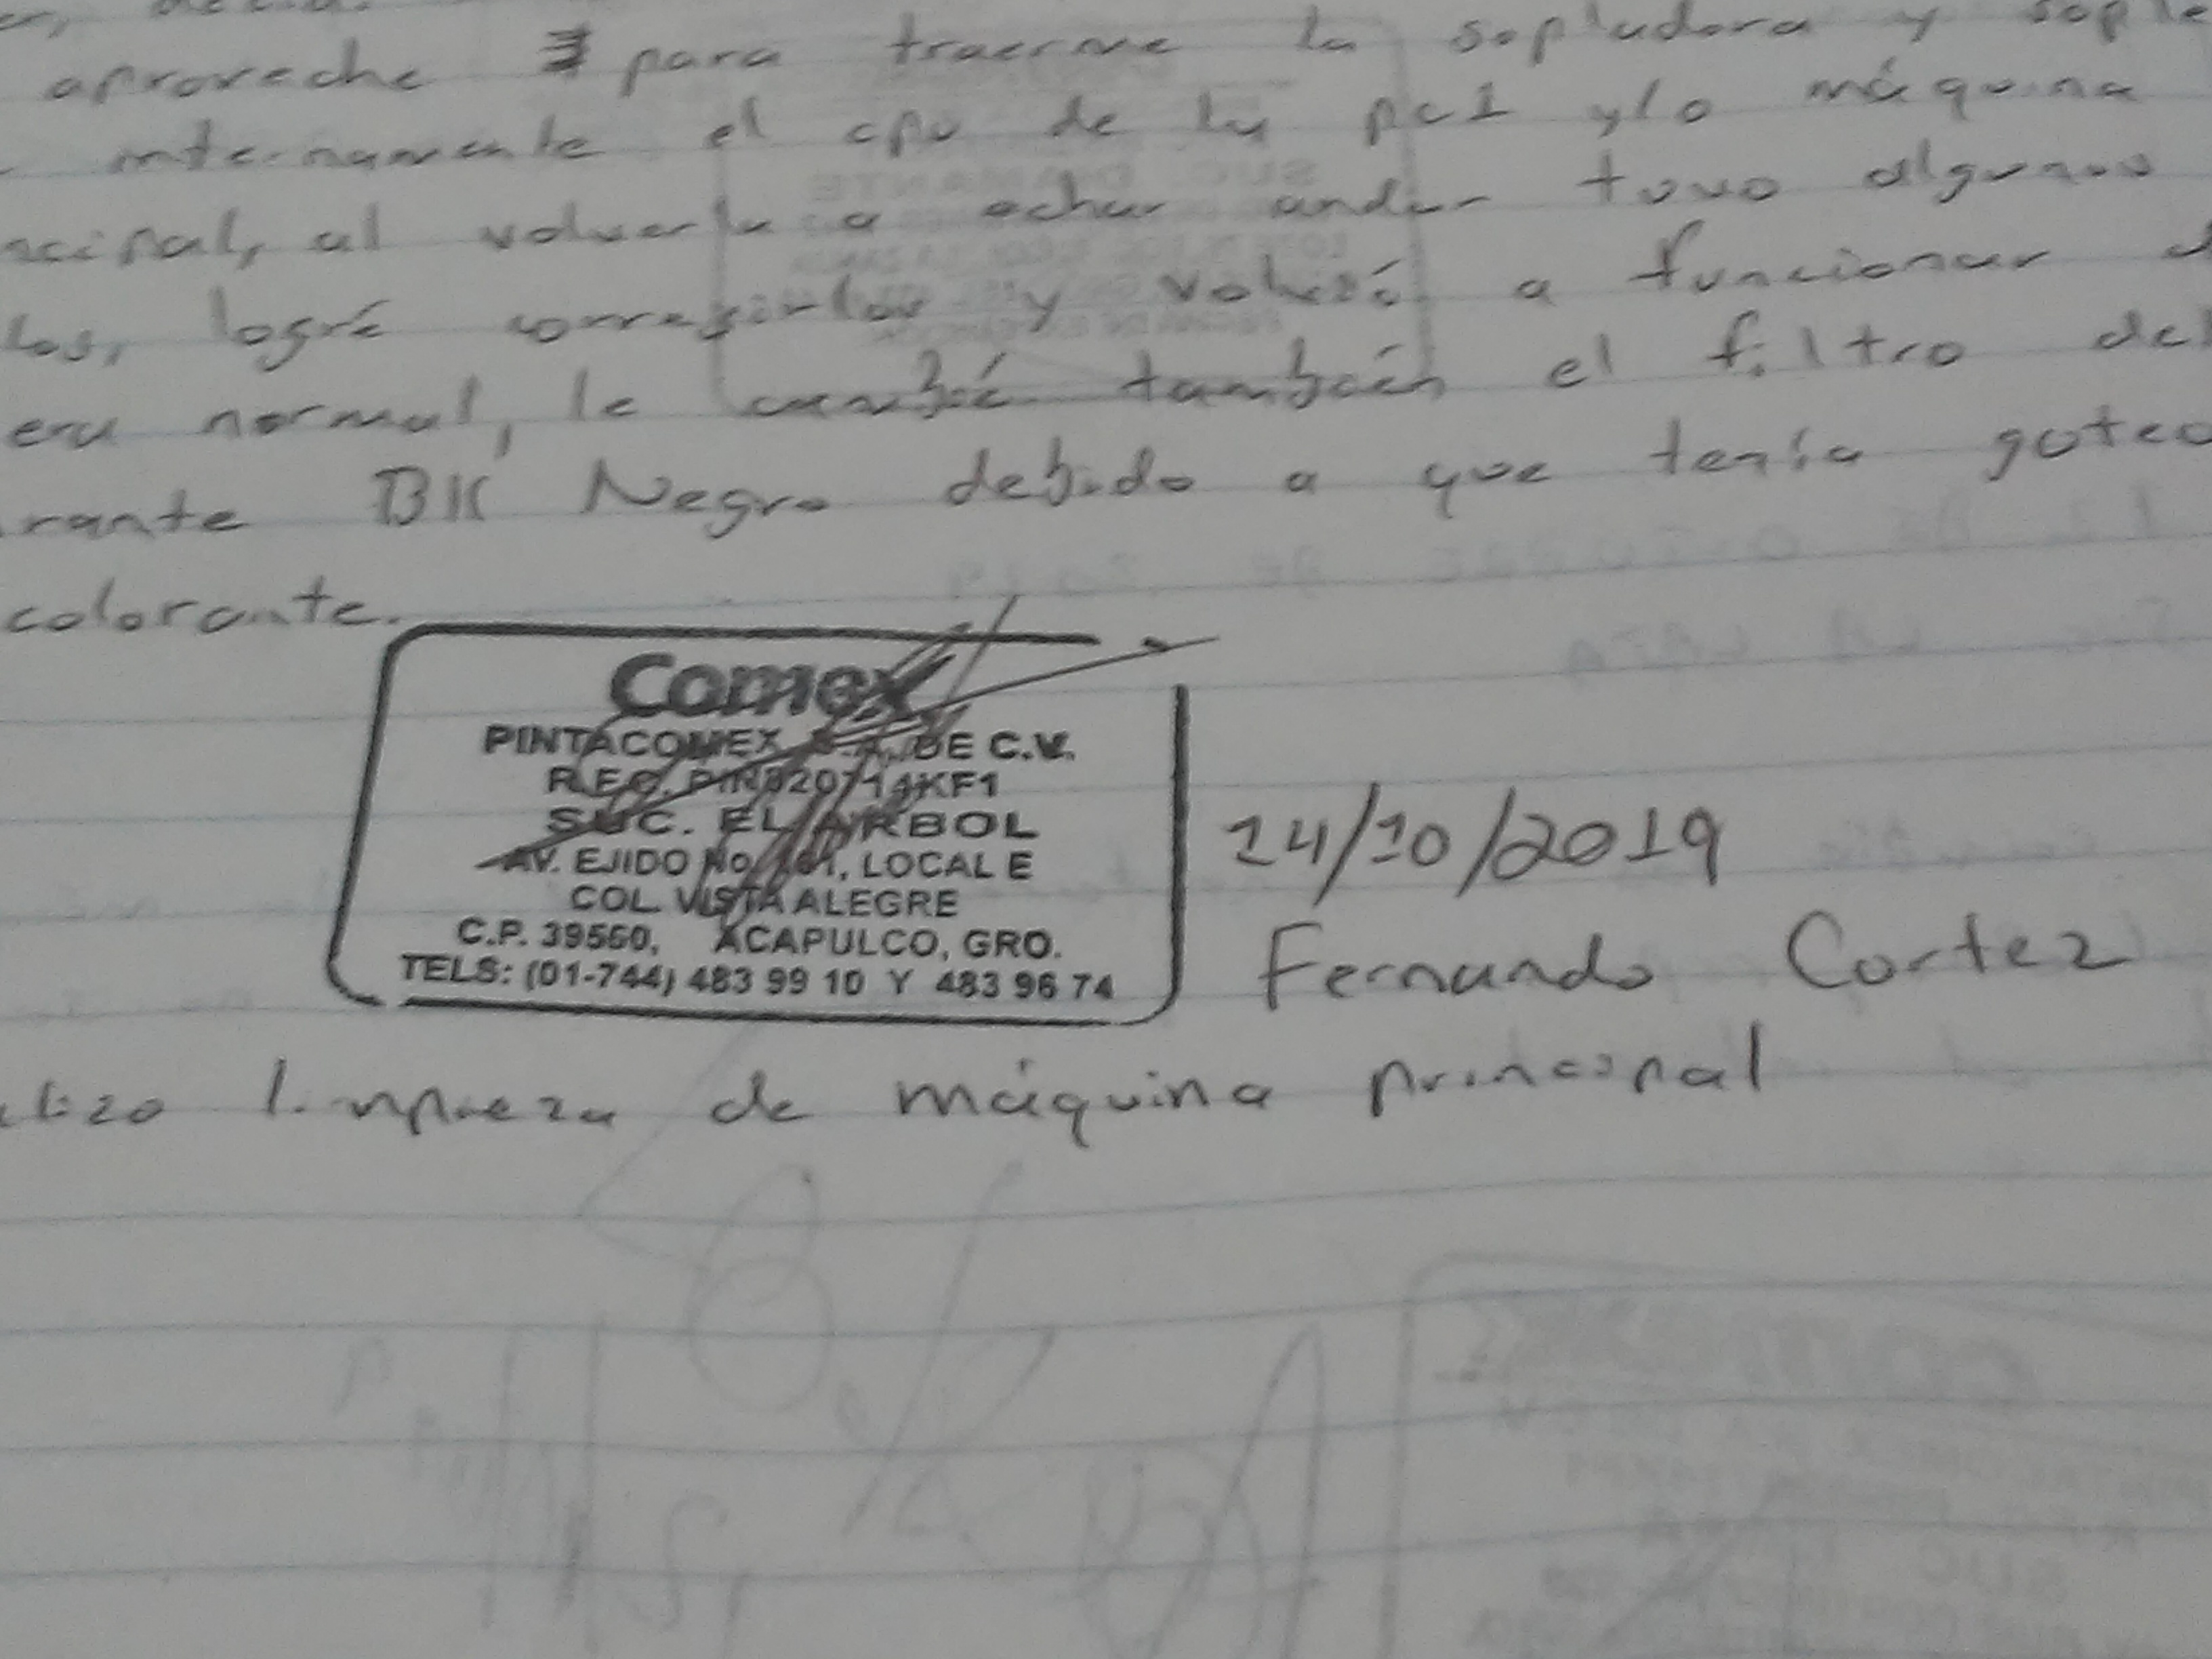 aproveche para traerme la sopladora y sople
internamente el cpu de la pc1 y/o máquina
ncipal, al volverla a echar andar tuvo algunos
los, logré corregirlos y volvió a funcionar
era normal, le cambié también el filtro del
rante BK Negro debido a que tenía goteo
colorante.
Comex
PINTACOMEX S.A. DE C.V.
R.F.C. PIN820714KF1
SUC. EL ARBOL
AV. EJIDO No. 101, LOCAL E
COL. VISTA ALEGRE
C.P. 39560, ACAPULCO, GRO.
TELS: (01-744) 483 99 10 Y 483 96 74
14/10/2019
Fernando Cortez
limpieza de máquina principal